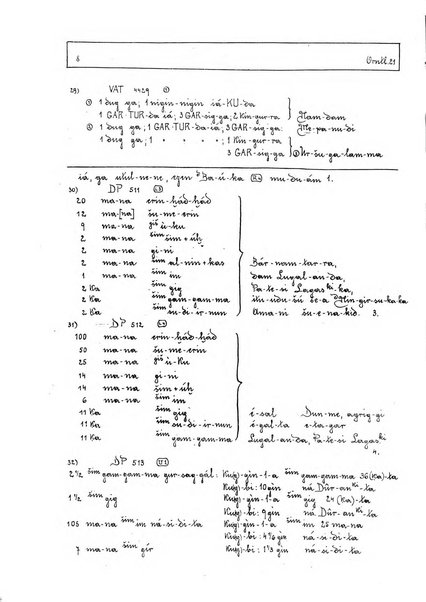 8 Ornℓ.21
29) VAT 4429
1 dug ga; 1 nigin-nigin iá-KU-da
1 GAR-TUR-da iá; 3 GAR-sig-ga; 2 Kin-gur-ra Nam-dam
1 dug ga; 1 GAR-TUR-da-iá; 3 GAR-sig-ga: Me-pa-nu-di
1 dug ga; 1 " " " ; 1 Kin-gur-ra
3 GAR-sig-ga Ur-šu-ga-lam-ma
iá, ga udu-ne-ne, ezen Ba-ú-ka mu-du-ám 1.
30) DP 511
20 ma-na erin-ḫád-ḫád
12 ma-[na] šu-me-erin
9 ma-na giš ù-ku
2 ma-na šim+úḫ
2 ma-na gi-ni
2 ma-na šim al-nin+kas Bár-nam-tar-ra,
1 ma-na šim im dam Lugal-an-da,
2 Ka šim gig Pa-te-si Lagaš ki-ka,
2 Ka šim gam-gam-ma itu-udu-šú še-a Nin-gir-su-ka-ka
2 Ka šim su-di-ir-nun Ama-ni šu-e-na-kid. 3.
31) DP 512
100 ma-na erin-ḫád-ḫád
50 ma-na šu-me-erin
25 ma-na giš ù-Ku
14 ma-na gi-ni
14 ma-na šim+úḫ
6 ma-na šim im
11 Ka šim gig é-sal Dun-me, azrig-gi
11 Ka šim su-di-ir-nun é-gal-ta e-ta-gar
11 Ka šim gam-gam-ma Lugal-an-da, Pa-te-si Lagaš ki
4.
32) DP 513
2 1/2 šim gam-gam-ma gur-sag-gál: Kug-gin-1-a šim gam-gam-ma 36 (Ka)-ta
Kug-bi: 10 gin ná Dūr-an ki-ta
1 1/2 šim gig Kug-gin-1-a šim gig 24 (Ka)-ta
Kug-bi: 9 gin ná Dūr-an ki-ta
105 ma-na šim im ná-si-di-ta Kug-gin-1-a šim im 25 ma-na
Kug-bi: 4 1/6 gin ná-si-di-ta
7 ma-na šim gír Kug-bi: 1 1/3 gin ná-si-di-ta